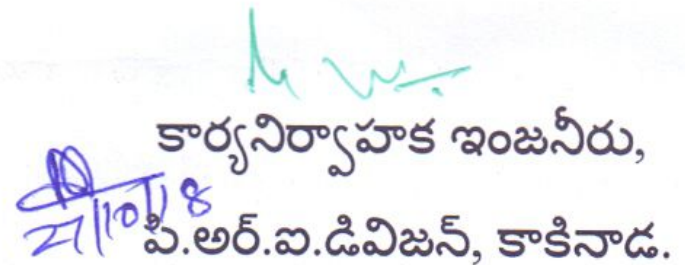 కార్యనిర్వాహక ఇంజనీరు,
27/10/18
పి.అర్.ఐ.డివిజన్, కాకినాడ.